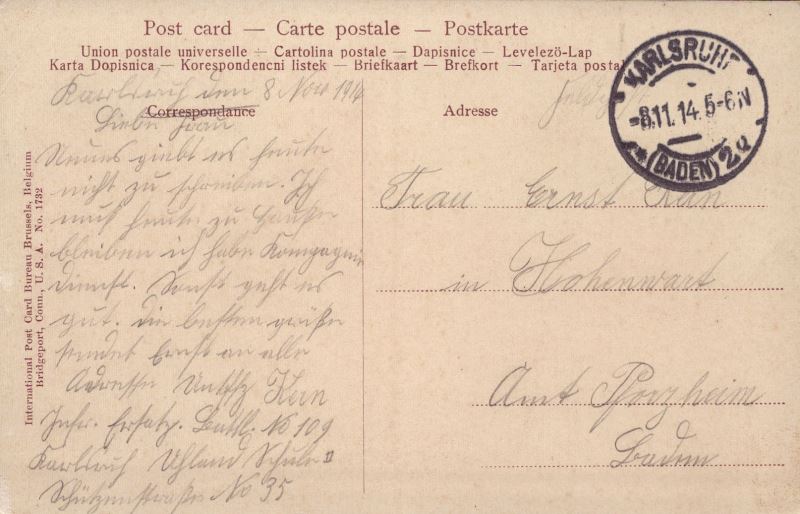 Post card — Carte postale — Postkarte
Union postale universelle — Cartolina postale — Dapisnice — Levelezö-Lap
Karta Dopisnica — Korespondencni listek — Briefkaart — Brefkort — Tarjeta postal
Karlsruh den 8 Nov 1914
Correspondance
Liebe Frau
Neues giebt es heute
nicht zu schreiben. Ich
muß heute zu Hause
bleiben ich habe Kompagnie
dienst. Sonst geht es
gut. Die besten Grüße
sendet Ernst an alle
Adresse Kern
Infr. Ersatz. Battl. No 109
Karlsruh Uhland Schule II
Schützenstraße No 35
Adresse
Feldpost
Frau Ernst Kern
in Hohenwart
Amt Pforzheim
Baden
KARLSRUHE
-8.11.14. 5-6 N
(BADEN) 2
International Post Card Bureau Brussels, Belgium
Bridgeport, Conn. U. S. A. No. 1732